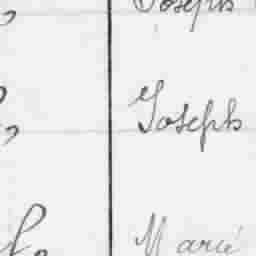 Joseph
Joseph
Marie